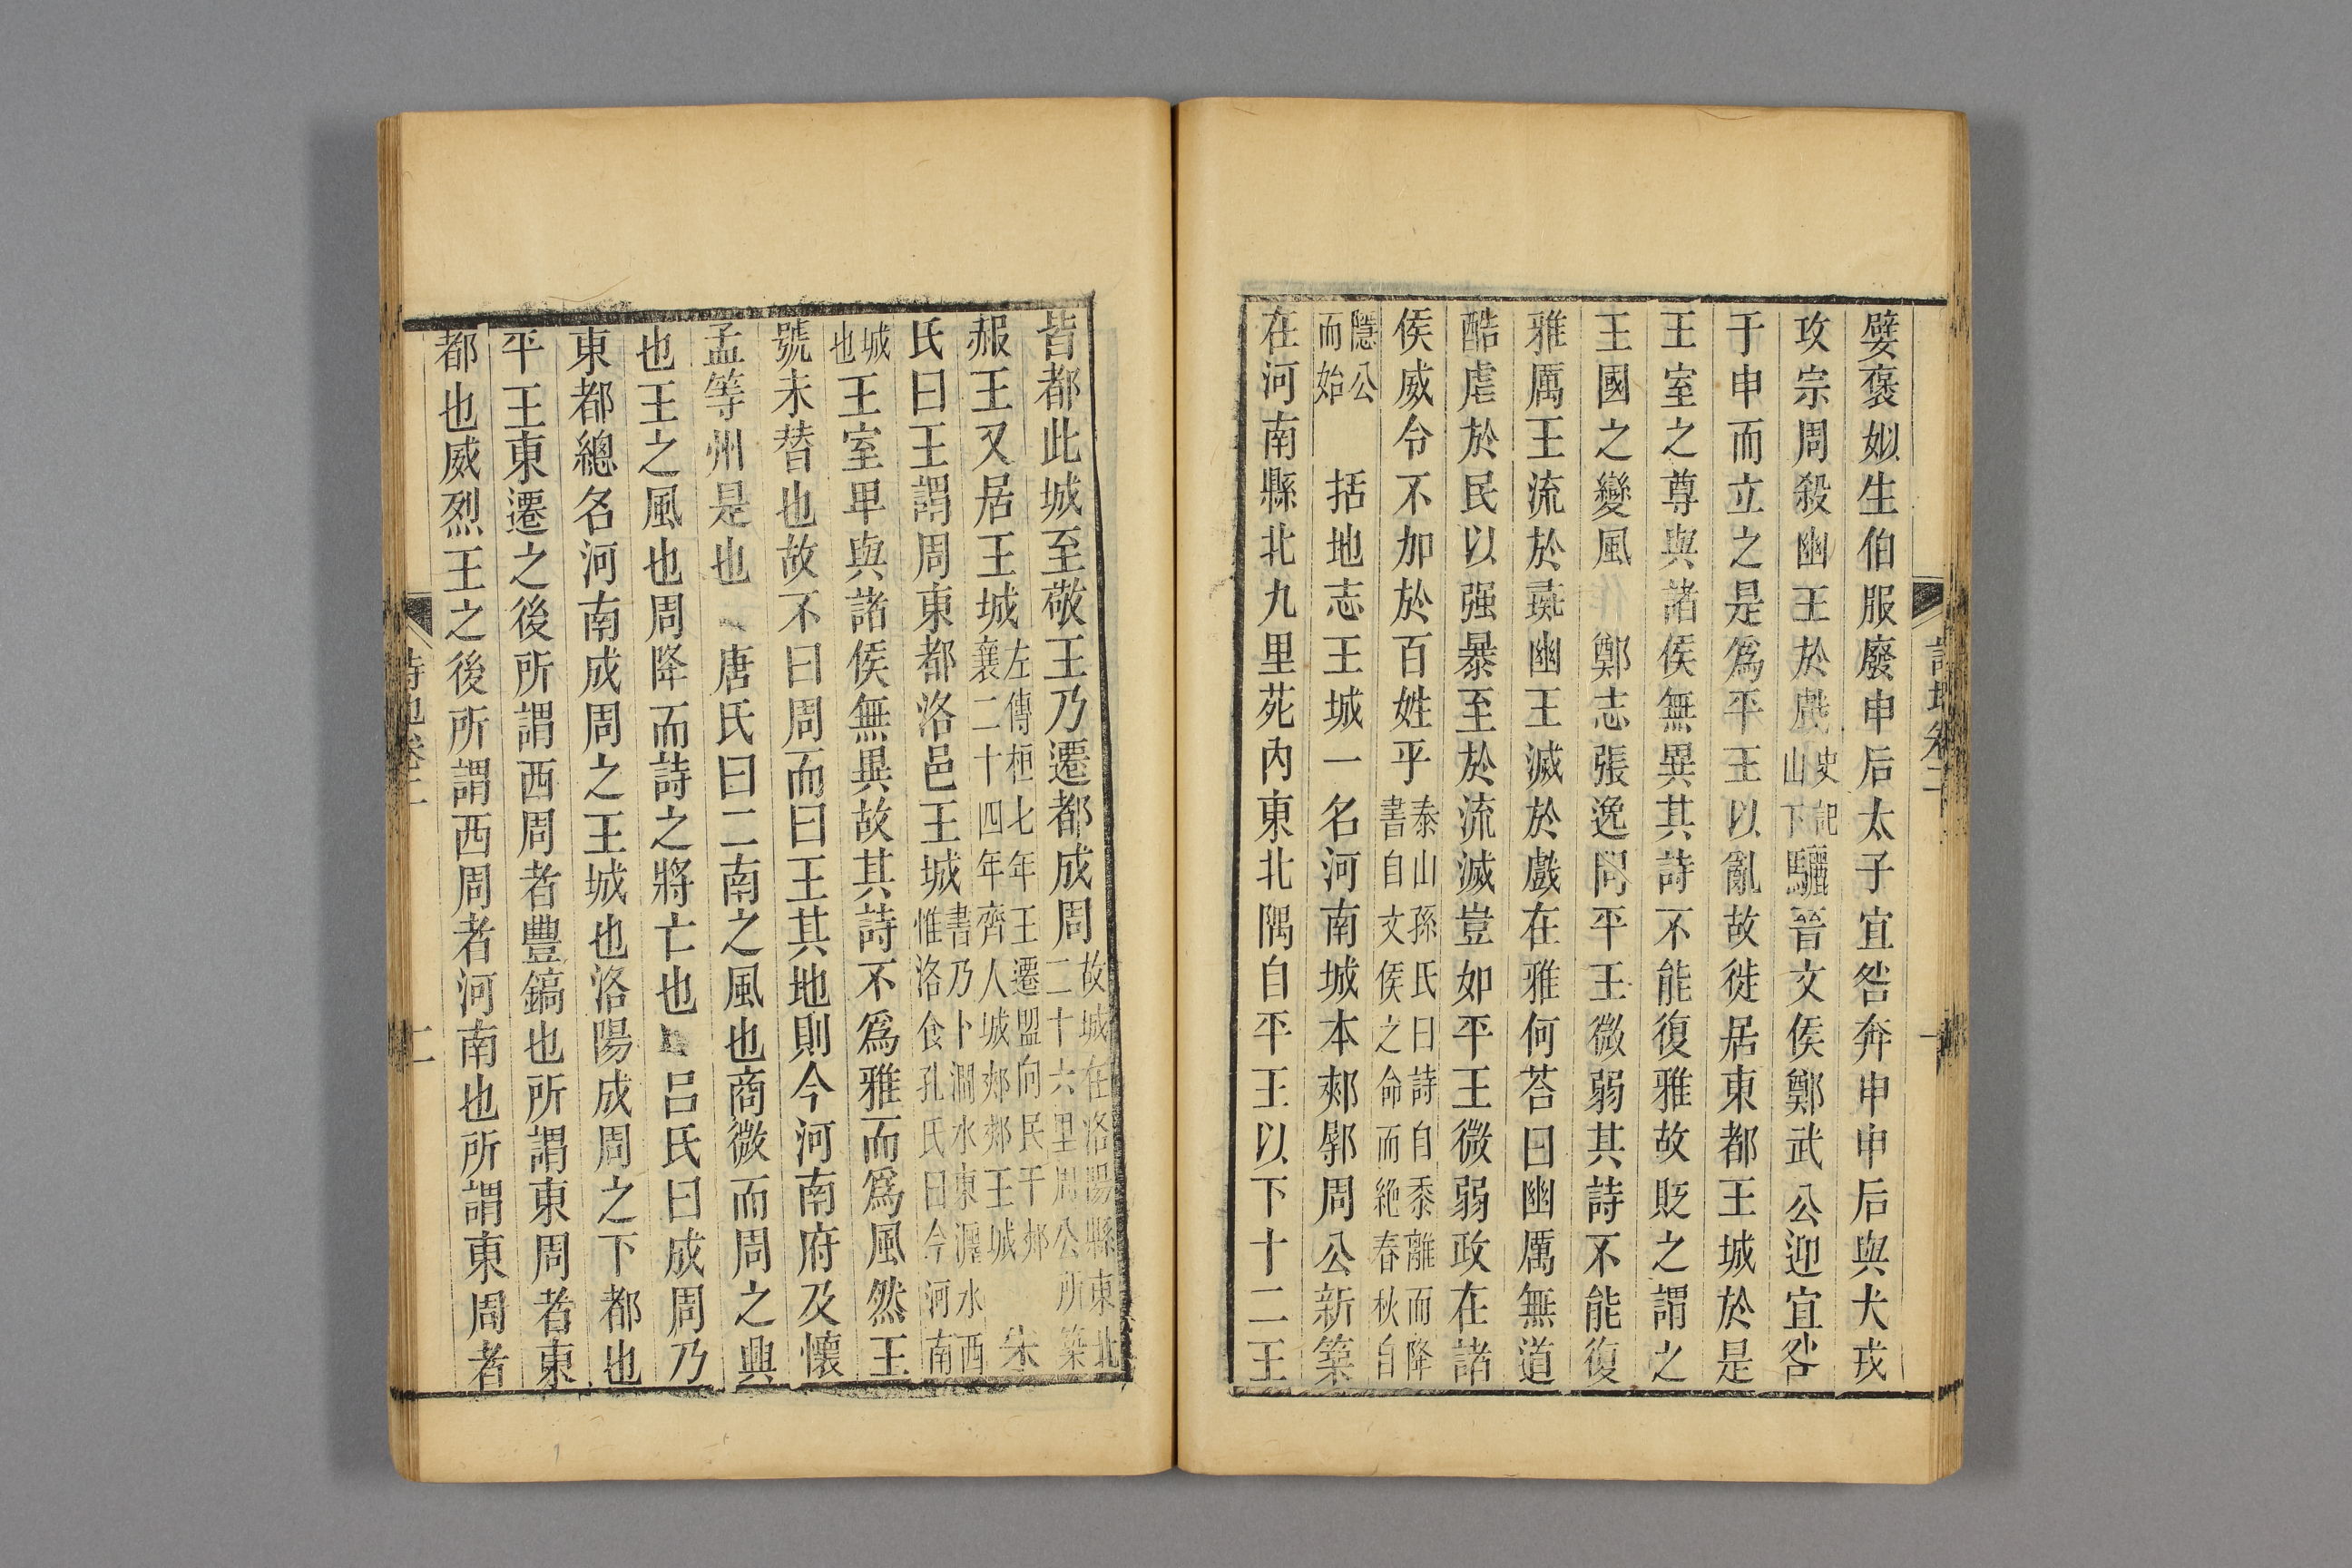 嬖褒姒生伯服廢申后太子宜咎奔申申后與犬戎
攻宗周殺幽王於戲史記驪山下晉文侯鄭武公迎宜咎
于申而立之是爲平王以亂故徙居東都王城於是
王室之尊與諸侯無異其詩不能復雅故貶之謂之
王國之變風作鄭志張逸問平王微弱其詩不能復
雅厲王流於彘幽王滅於戲在雅何荅曰幽厲無道
酷虐於民以强暴至於流滅豈如平王微弱政在諸
侯威令不加於百姓乎泰山孫氏曰詩自黍離而降書自文侯之命而絶春秋自
隱公而始 括地志王城一名河南城本郟鄏周公新築
在河南縣北九里苑內東北隅自平王以下十二王
詩地卷二
皆都此城至敬王乃遷都成周故城在洛陽縣東北二十六里周公所築
赧王又居王城左傳桓七年王遷盟向民于郟襄二十四年齊人城郟郟王城 朱
氏曰王謂周東都洛邑王城書乃卜澗水東瀍水西惟洛食孔氏曰今河南
城也王室卑與諸侯無異故其詩不爲雅而爲風然王
號未替也故不曰周而曰王其地則今河南府及懷
孟等州是也 唐氏曰二南之風也商微而周之興
也王之風也周降而詩之將亡也 呂氏曰成周乃
東都總名河南成周之王城也洛陽成周之下都也
平王東遷之後所謂西周者豐鎬也所謂東周者東
都也威烈王之後所謂西周者河南也所謂東周者
詩地卷二
二